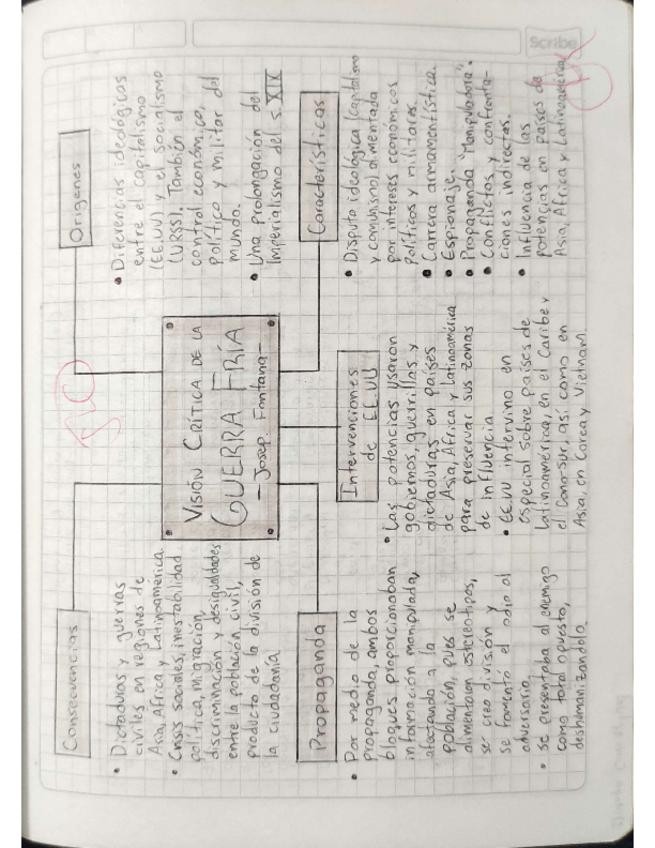 Scribe
VISIÓN CRÍTICA DE LA
GUERRA FRÍA
- Josep Fontana -
Consecuencias
• Dictaduras y guerras
civiles en regiones de
Asia, África y Latinoamérica
• Crisis sociales, inestabilidad
política, migración,
discriminación y desigualdades
entre la población civil,
producto de la división de
la ciudadanía
Orígenes
• Diferencias ideológicas
entre el capitalismo
(EE.UU) y el socialismo
(URSS). También el
control económico,
político y militar del
mundo.
• Una Prolongación del
Imperialismo del s. XIX
Propaganda
• Por medio de la
propaganda, ambos
bloques proporcionaban
información manipulada,
afectando a la
población, pues se
alimentaron estereotipos,
se creo división y
se fomentó el odio al
adversario.
• Se presentaba al enemigo
como total opuesto,
deshumanizandolo.
Intervenciones
de EE.UU
• Las potencias usaron
gobiernos, guerrillas y
dictaduras en países
de Asia, África y Latinoamérica
para preservar sus zonas
de influencia
• EE.UU intervino en
especial sobre países de
Latinoamérica, en el Caribe y
el Cono-sur, así como en
Asia, en Corea y Vietnam.
Características
• Disputa ideológica (capitalismo
y comunismo) alimentada
por intereses económicos
Políticos y militares.
• Carrera armamentística.
• Espionaje.
• Propaganda "Manipuladora".
• Conflictos y confronta-
ciones indirectas.
• Influencia de las
potencias en países de
Asia, África y Latinoamérica